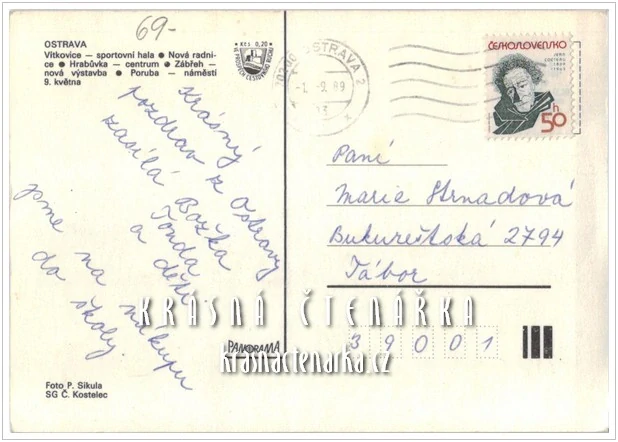 69-
OSTRAVA
Vítkovice – sportovní hala ● Nová radni-
ce ● Hrabůvka – centrum ● Zábřeh –
nová výstavba ● Poruba – náměstí
9. května
Kčs 0,20
OSTRAVA 2
-1. -9. 89
ČESKOSLOVENSKO
50 h
Krásný
pozdrav z Ostravy
zasílá Božka
Tonda
a děti.
jsme na nákupu
do školy.
Paní
Marie Strnadová
Bukureštská 2794
Tábor
39001
KRÁSNÁ ČTENÁŘKA
krasnactenarka.cz
PANORAMA
Foto P. Sikula
SG Č. Kostelec